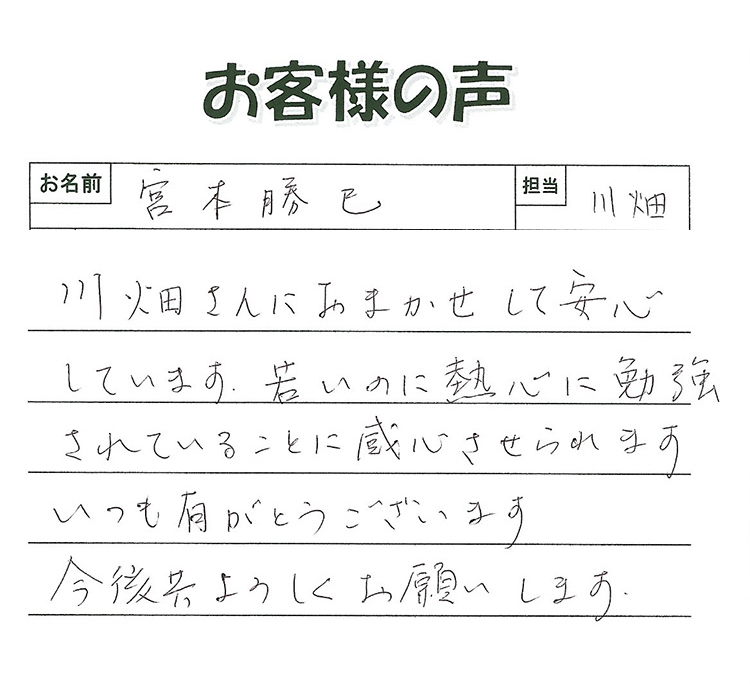 お客様の声
お名前 宮本勝巳 担当 川畑
川畑さんにおまかせして安心
しています.若いのに熱心に勉強
されていることに感心させられます
いつも有がとうございます
今後共よろしくお願いします.